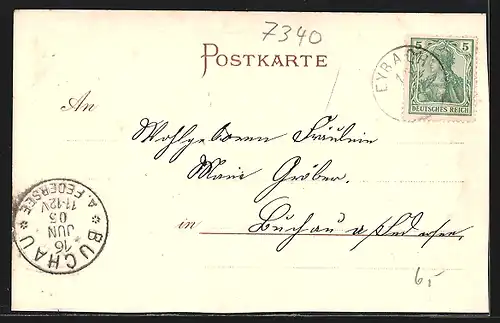 7340
POSTKARTE
5 5
DEUTSCHES REICH
EYBACH
An
Wohlgeboren Fräulein
Marie Gröber.
in Buchau a/Federsee.
BUCHAU
A. FEDERSEE
16
JUN
05
11-12V
6,-